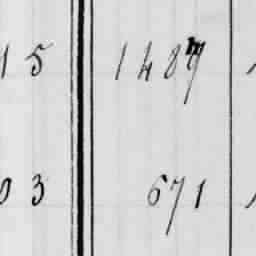 15 148
03 671